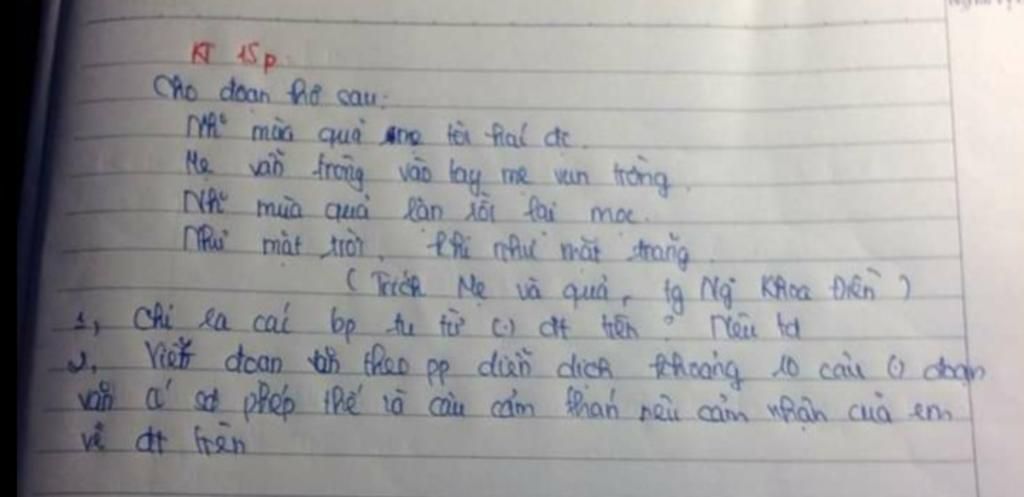 KT 15p.
Cho đoạn thơ sau:
Nhữ mùa quả mẹ tôi hái đc.
Mẹ vẫn trông vào tay mẹ vun trồng.
Nhữ mùa quả lặn rồi lại mọc.
Như mặt trời, khi như mặt trăng.
(Trích Mẹ và quả, tg Ng Khoa Điềm)
1, Chỉ ra các bp tu từ (.) đt trên? Nêu td
2, Viết đoạn văn theo pp diễn dịch khoảng 10 câu (.) đoạn
văn có sd phép thế và câu cảm thán nêu cảm nhận của em
về đt trên